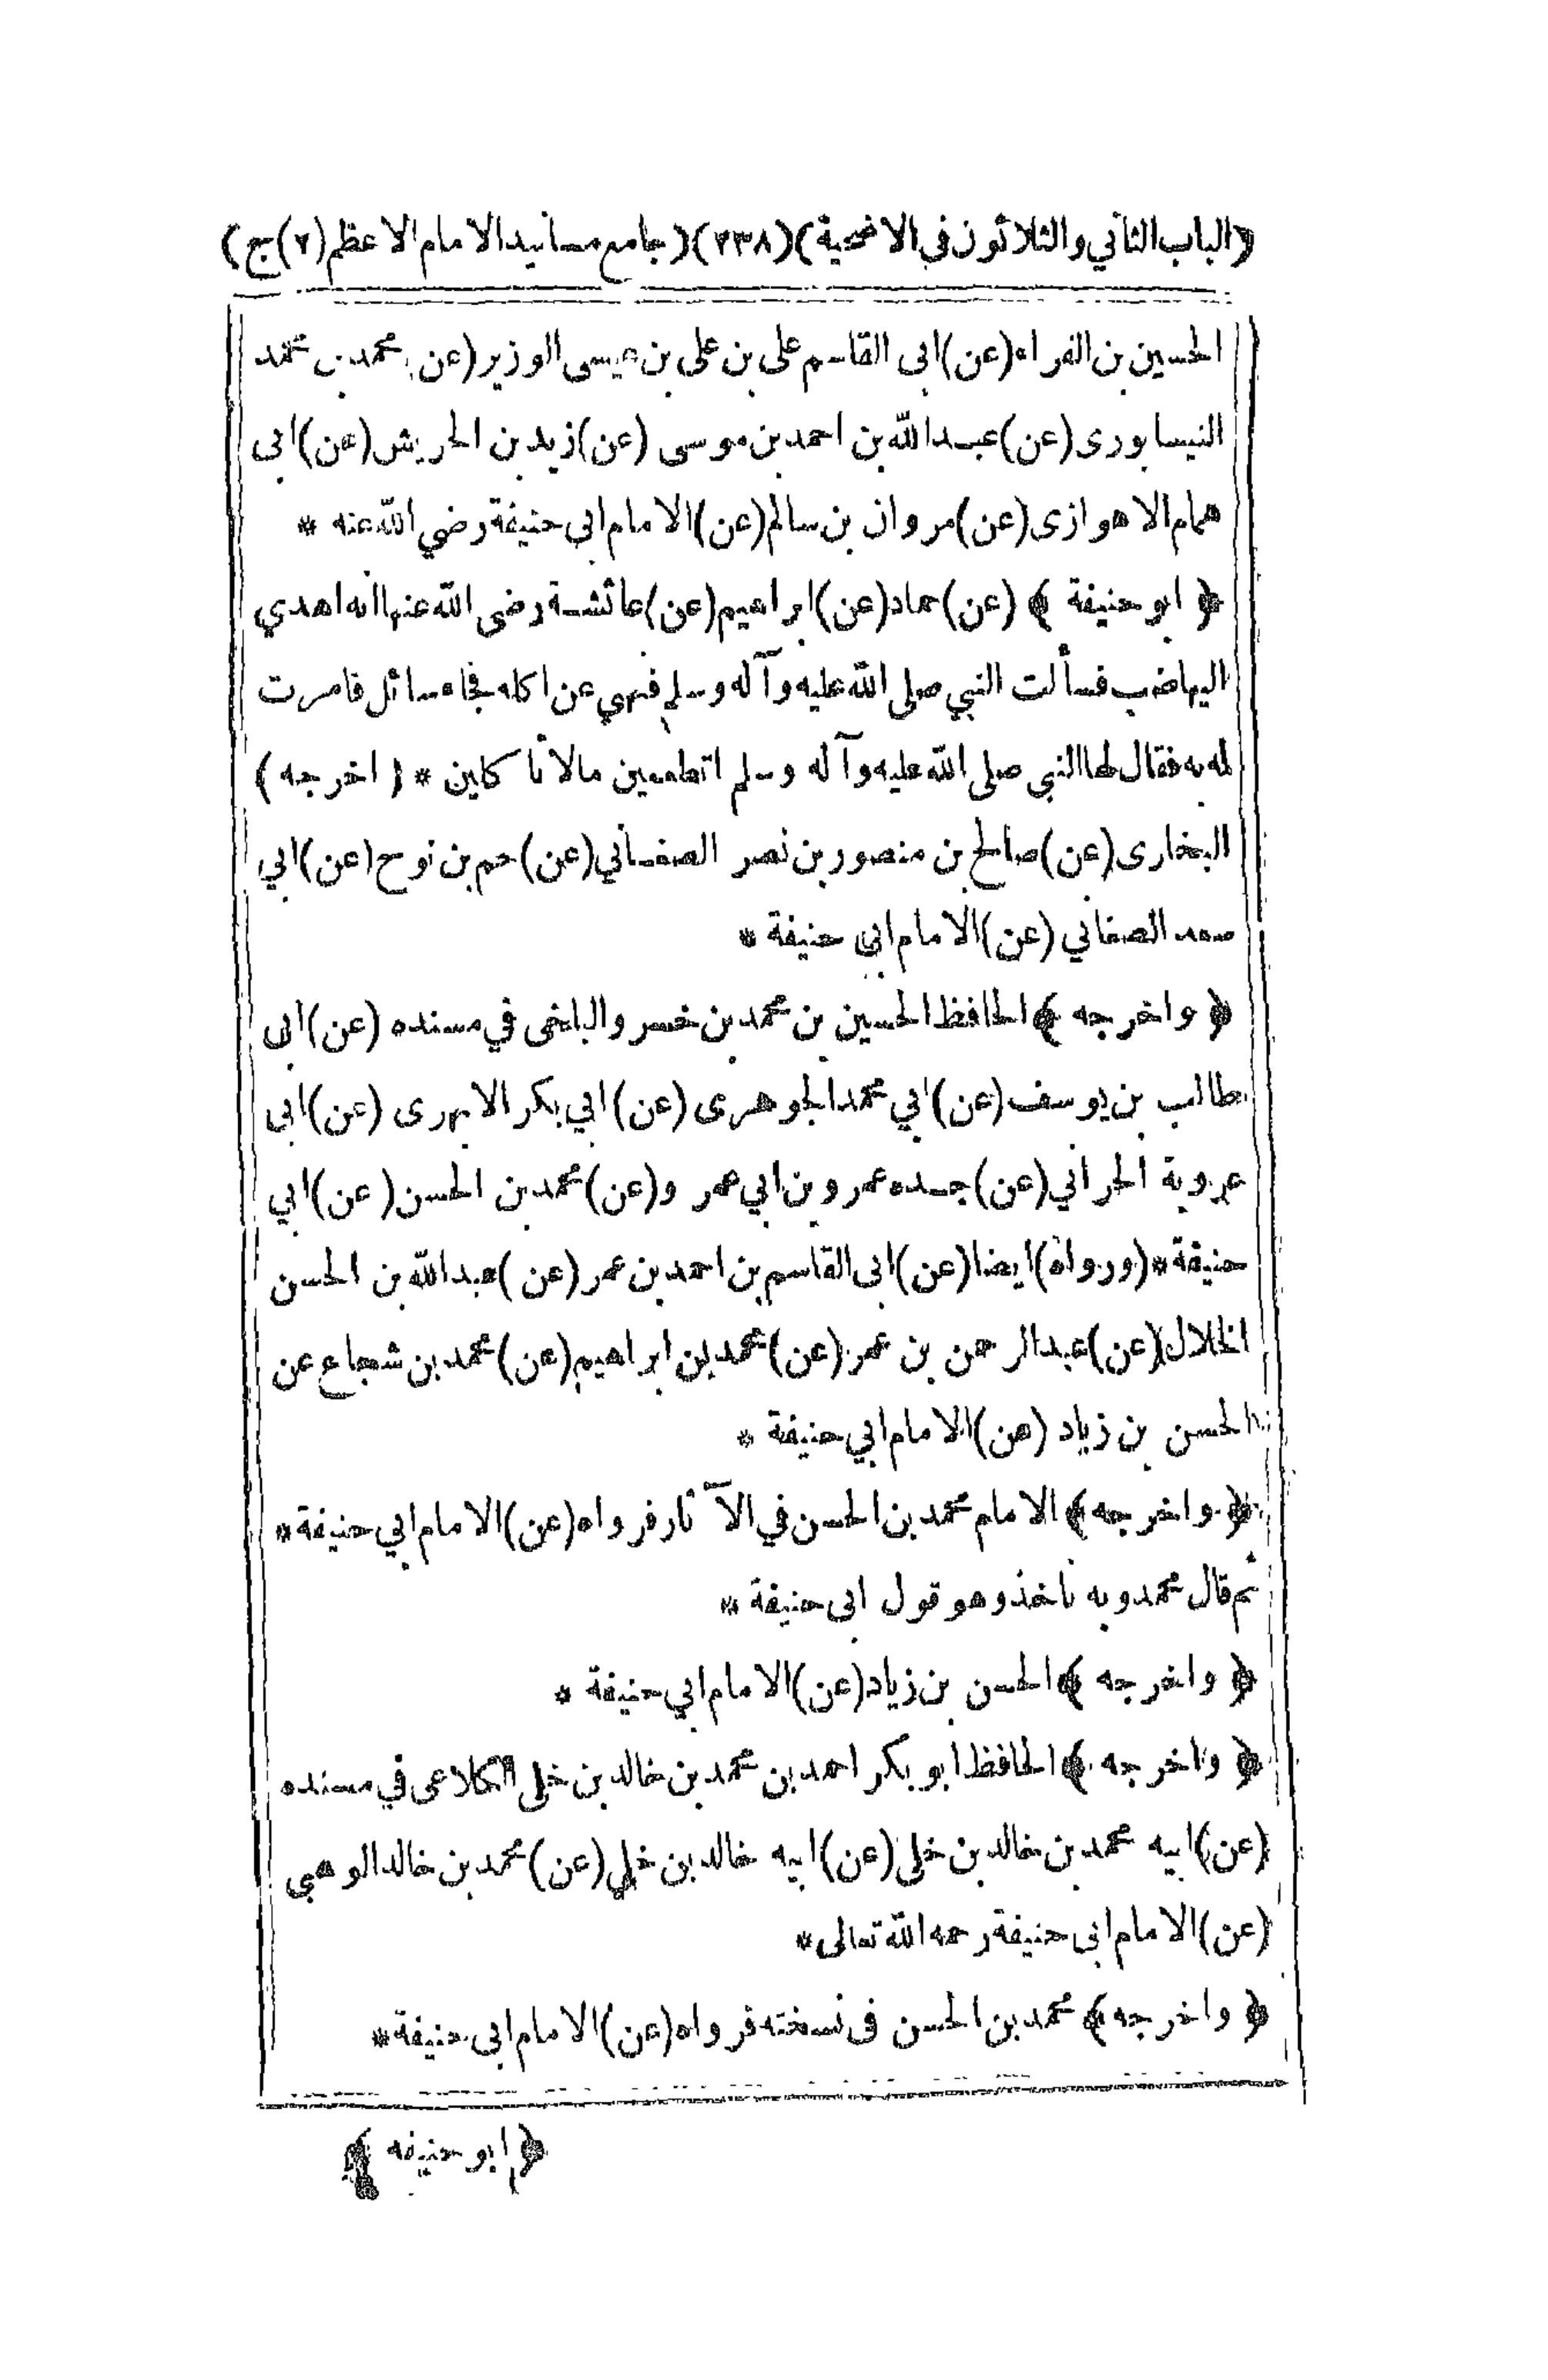 ﴿الباب الثاني والثلاثون في الاضحية﴾ (٢٣٨) (جامع مسانيد الامام الاعظم (٢) ج)
الحسين بن الفراء (عن) ابى القاسم على بن على بن عيسى الوزير (عن) محمد بن محمد
النيسابورى (عن) عبد الله بن احمد بن موسى (عن) زيد بن الحريش (عن) ابى
همام الاهوازى (عن) مروان بن سالم (عن) الامام ابي حنيفة رضي الله عنه *
﴿ ابو حنيفة ﴾ (عن) حماد (عن) ابراهيم (عن) عائشة رضى الله عنها انه اهدي
اليها ضب فسألت النبي صلى الله عليه وآله وسلم فنهي عن اكله فجاء سائل فامرت
له به فقال لها النبي صلى الله عليه وآله وسلم اتطعمين مالا تأكلين * ( اخرجه )
البخارى (عن) صالح بن منصور بن نصر الصغاني (عن) حم بن نوح (عن) ابي
سعد الصغاني (عن) الامام ابي حنيفة *
﴿ واخرجه ﴾ الحافظ الحسين بن محمد بن خسرو البلخى في مسنده (عن) ابى
طالب بن يوسف (عن) ابي محمد الجوهرى (عن) ابي بكر الابهرى (عن) ابى
عروبة الحراني (عن) جده عمرو بن ابي عمر و (عن) محمد بن الحسن (عن) ابي
حنيفة * (ورواه) ايضا (عن) ابى القاسم بن احمد بن عمر (عن) عبد الله بن الحسن
الخلال (عن) عبد الرحمن بن عمر (عن) محمد بن ابراهيم (عن) محمد بن شجاع عن
الحسن بن زياد (عن) الامام ابي حنيفة *
﴿ واخرجه ﴾ الامام محمد بن الحسن في الآثار فرواه (عن) الامام ابي حنيفة *
ثم قال محمد وبه نأخذ وهو قول ابى حنيفة *
﴿ واخرجه ﴾ الحسن بن زياد (عن) الامام ابي حنيفة *
﴿ واخرجه ﴾ الحافظ ابو بكر احمد بن محمد بن خالد بن خلى الكلاعى في مسنده
(عن) ابيه محمد بن خالد بن خلى (عن) ابيه خالد بن خلي (عن) محمد بن خالد الوهبي
(عن) الامام ابى حنيفة رحمه الله تعالى *
﴿ واخرجه ﴾ محمد بن الحسن فى نسخته فرواه (عن) الامام ابى حنيفة *
﴿ ابو حنيفه ﴾